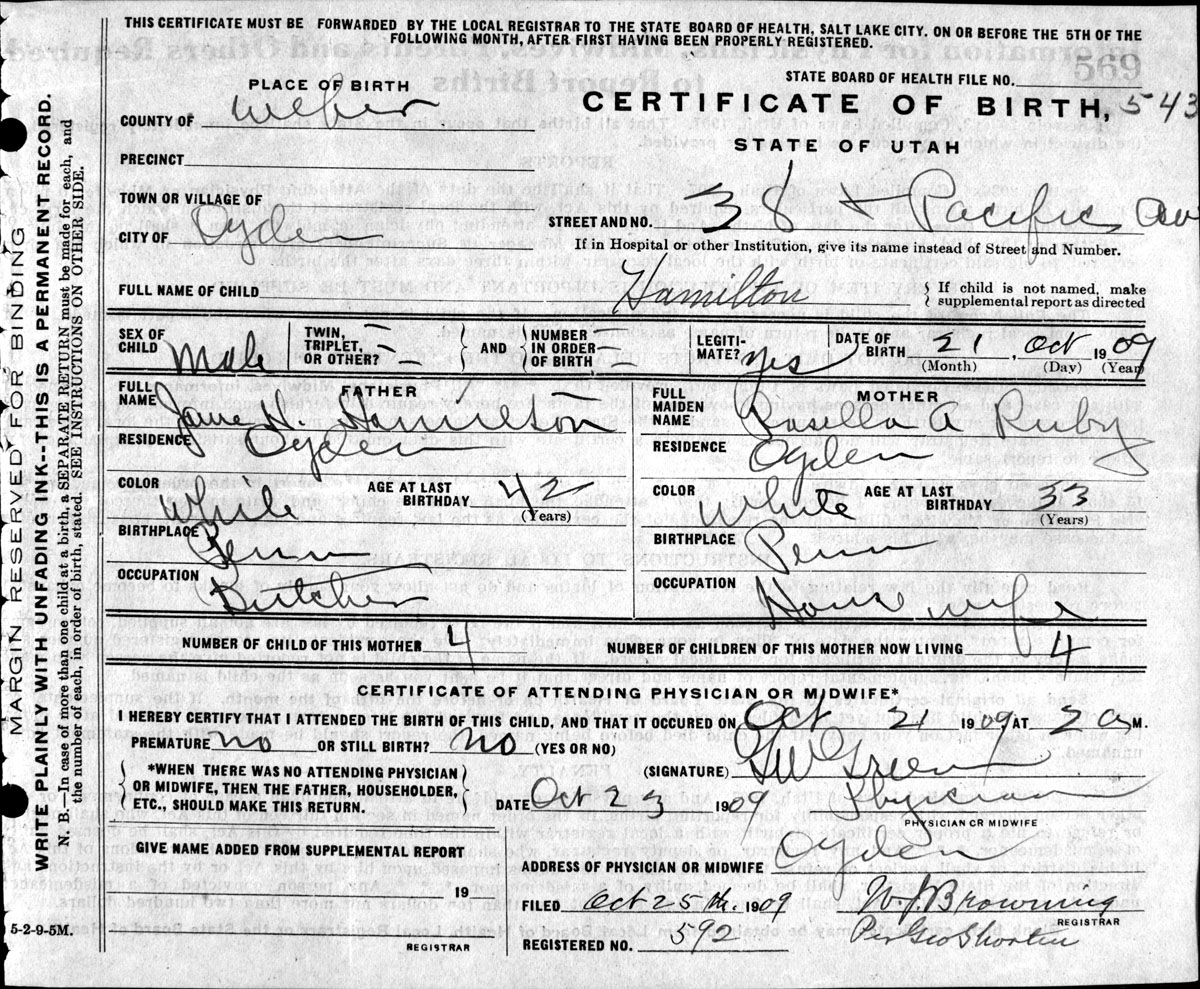 THIS CERTIFICATE MUST BE FORWARDED BY THE LOCAL REGISTRAR TO THE STATE BOARD OF HEALTH, SALT LAKE CITY. ON OR BEFORE THE 5TH OF THE
FOLLOWING MONTH, AFTER FIRST HAVING BEEN PROPERLY REGISTERED.
MARGIN RESERVED FOR BINDING
WRITE PLAINLY WITH UNFADING INK--THIS IS A PERMANENT RECORD.
N. B.—In case of more than one child at a birth, a SEPARATE RETURN must be made for each, and
the number of each, in order of birth, stated. SEE INSTRUCTIONS ON OTHER SIDE.
569
PLACE OF BIRTH
STATE BOARD OF HEALTH FILE NO.
COUNTY OF Weber
CERTIFICATE OF BIRTH, 543
PRECINCT
STATE OF UTAH
TOWN OR VILLAGE OF
CITY OF Ogden
STREET AND NO. 38 & Pacific Av
If in Hospital or other Institution, give its name instead of Street and Number.
FULL NAME OF CHILD Hamilton { If child is not named, make
supplemental report as directed
SEX OF CHILD Male
TWIN, TRIPLET, OR OTHER? { AND { NUMBER IN ORDER OF BIRTH
LEGITIMATE? Yes
DATE OF BIRTH 21, Oct 1909
(Month) (Day) (Year)
FATHER
FULL NAME Hamilton
RESIDENCE Ogden
COLOR White AGE AT LAST BIRTHDAY 42 (Years)
BIRTHPLACE Penn
OCCUPATION Butcher
MOTHER
FULL MAIDEN NAME Rosella A Ruby
RESIDENCE Ogden
COLOR White AGE AT LAST BIRTHDAY 33 (Years)
BIRTHPLACE Penn
OCCUPATION House wife
NUMBER OF CHILD OF THIS MOTHER 4 NUMBER OF CHILDREN OF THIS MOTHER NOW LIVING 4
CERTIFICATE OF ATTENDING PHYSICIAN OR MIDWIFE*
I HEREBY CERTIFY THAT I ATTENDED THE BIRTH OF THIS CHILD, AND THAT IT OCCURED ON Oct 21 1909 AT 2 a M.
PREMATURE no OR STILL BIRTH? no (YES OR NO)
{ *WHEN THERE WAS NO ATTENDING PHYSICIAN
OR MIDWIFE, THEN THE FATHER, HOUSEHOLDER,
ETC., SHOULD MAKE THIS RETURN. }
(SIGNATURE) Green
DATE Oct 23 1909 Physician
PHYSICIAN OR MIDWIFE
GIVE NAME ADDED FROM SUPPLEMENTAL REPORT
ADDRESS OF PHYSICIAN OR MIDWIFE Ogden
19
FILED Oct 25th. 1909 W. J. Browning
REGISTRAR
5-2-9-5M.
REGISTRAR
REGISTERED NO. 592 Per Geo Shorten